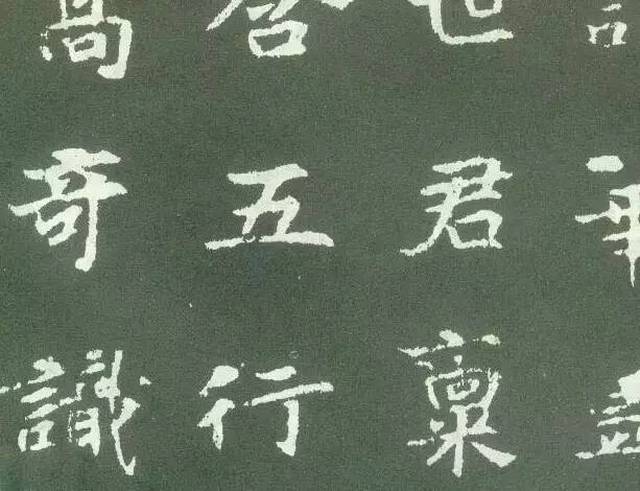 也君稟
含五行
高奇識